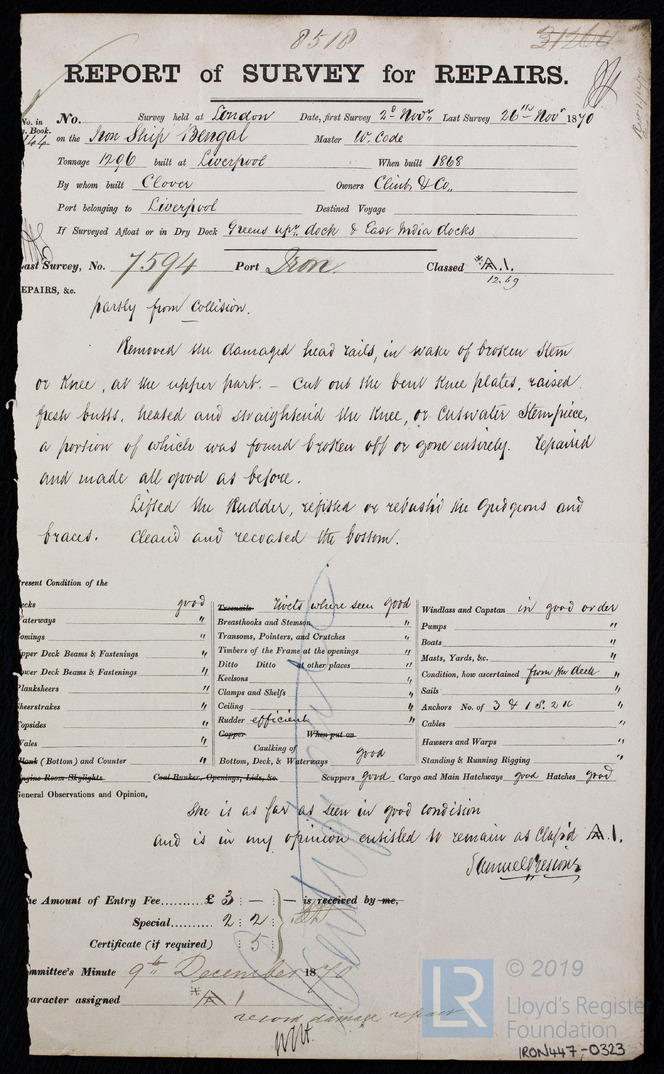 8518
31264
REPORT of SURVEY for REPAIRS.
No. in No. Survey held at London Date, first Survey 2d Novr Last Survey 26th Novr 1870
Book.
144 on the Iron Ship Bengal Master W. Code
Tonnage 1296 built at Liverpool When built 1868
By whom built Clover Owners Clint & Co.
Port belonging to Liverpool Destined Voyage
If Surveyed Afloat or in Dry Dock Greens upr dock & East India docks
ast Survey, No. 7594 Port Iron. Classed *A.1.
12.69
EPAIRS, &c.
partly from Collision.
Removed the damaged head rails, in wake of broken Stem
or Knee, at the upper part. – Cut out the bent Knee plates, raised
fresh butts, heated and straighten'd the Knee, or Cutwater Stempiece,
a portion of which was found broken off or gone entirely. repaired
and made all good as before.
Lifted the Rudder, refitted or rebush'd the Gudgeons and
braces. Cleand and recoated the bottom.
resent Condition of the
ecks good
aterways "
omings "
pper Deck Beams & Fastenings "
ower Deck Beams & Fastenings "
lanksheers "
heerstrakes "
opsides "
ales "
lank (Bottom) and Counter "
ngine Room Skylights Coal Bunker, Openings, Lids, &c.
Treenails rivets where seen good
Breasthooks and Stemson "
Transoms, Pointers, and Crutches "
Timbers of the Frame at the openings "
Ditto Ditto at other places "
Keelsons "
Clamps and Shelfs "
Ceiling "
Rudder efficient "
Copper When put on
Caulking of
Bottom, Deck, & Waterways good
Windlass and Capstan in good order
Pumps "
Boats "
Masts, Yards, &c. "
Condition, how ascertained from the deck "
Sails "
Anchors No. of 3 & 1 S. 2 K "
Cables "
Hawsers and Warps "
Standing & Running Rigging "
Scuppers good Cargo and Main Hatchways good Hatches good
General Observations and Opinion,
She is as far as seen in good condition
and is in my opinion entitled to remain as Class'd A.1.
he Amount of Entry Fee £ 3 : — : — is received by me,
Special 2 : 2 :
Certificate (if required) : 5 :
ommittee's Minute 9th December 1870
aracter assigned *A 1
record damage repair
LR
© 2019
Lloyd's Register
Foundation
IRON447-0323